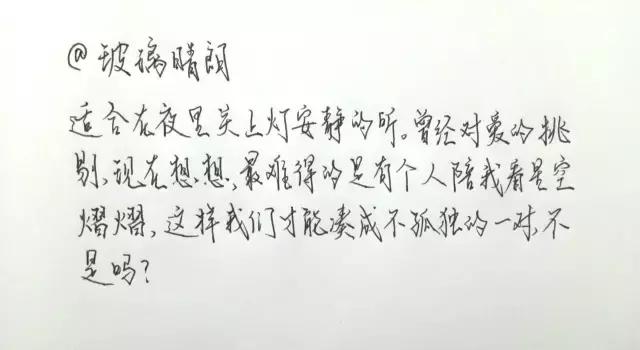 @玻璃晴朗
适合在夜里关上灯安静的听。曾经对爱的挑
剔,现在想想,最难得的是有个人陪我看星空
熠熠,这样我们才能凑成不孤独的一对,不
是吗?